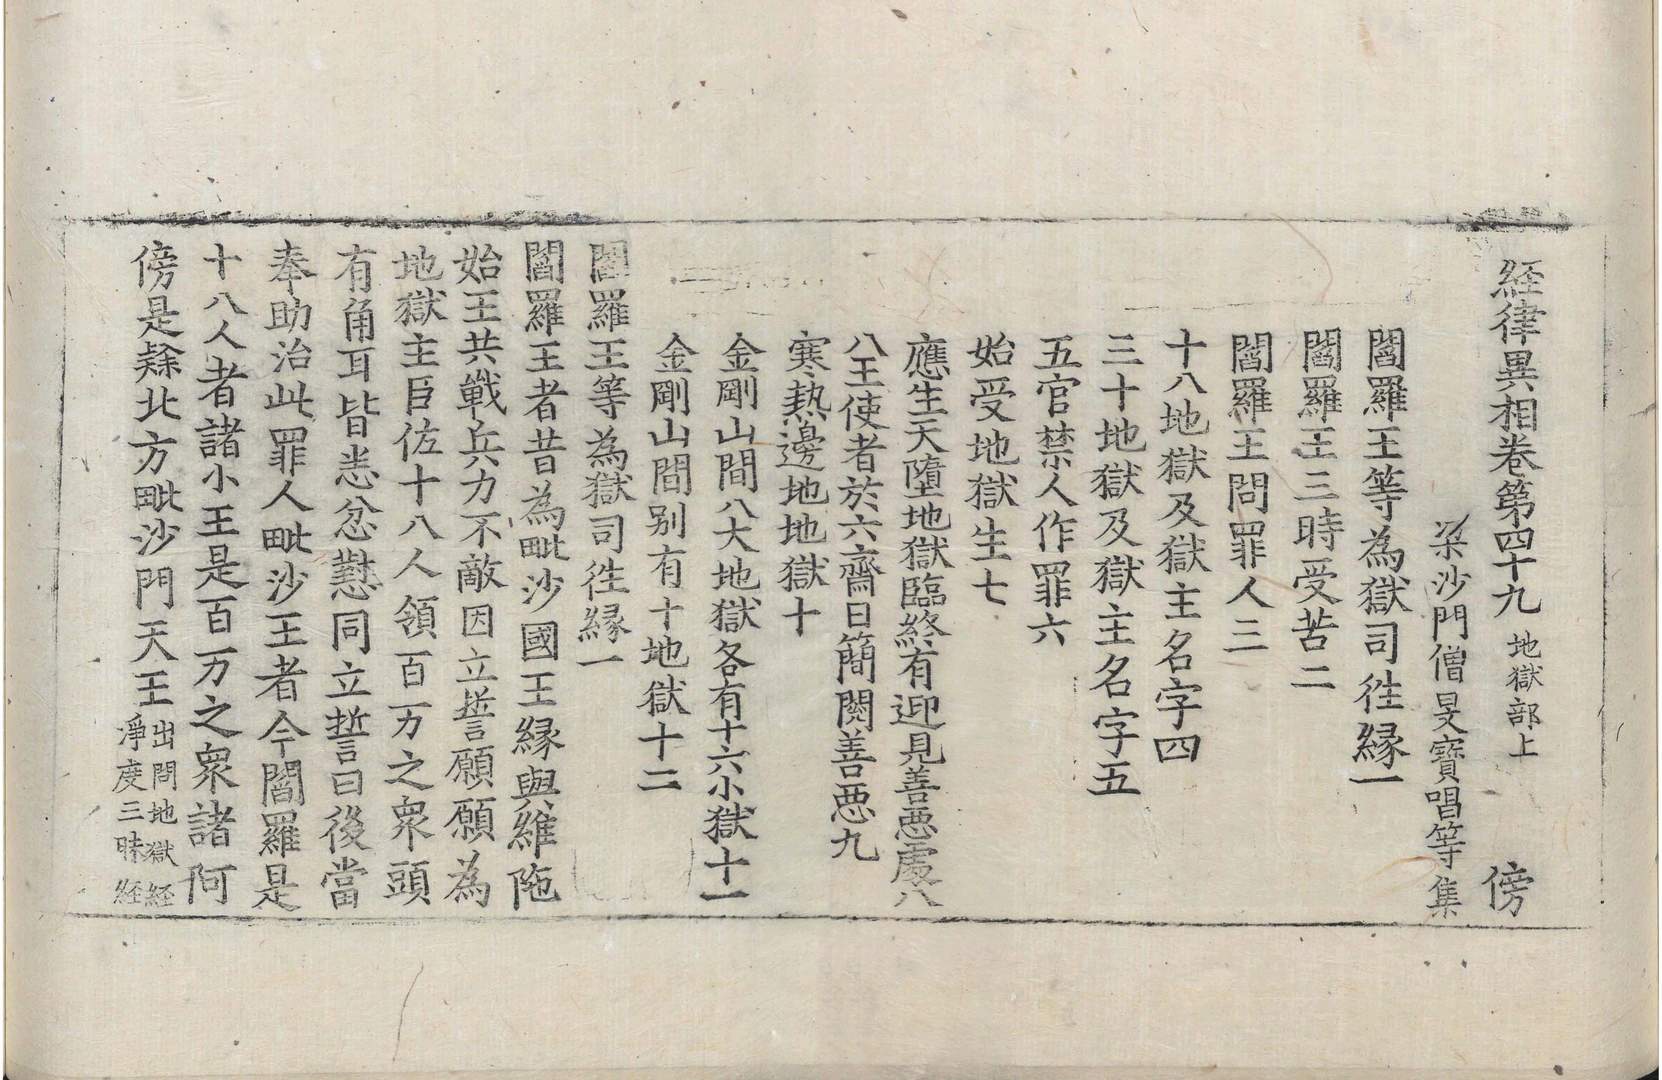 経律異相卷第四十九 地獄部上 傍
梁沙門僧旻寶唱等集
閻羅王等為獄司徃縁一
閻羅王三時受苦二
閻羅王問罪人三
十八地獄及獄主名字四
三十地獄及獄主名字五
五官禁人作罪六
始受地獄生七
應生天墮地獄臨終有迎見善惡處八
八王使者於六齋日簡閱善惡九
寒熱邊地地獄十
金剛山間八大地獄各有十六小獄十一
金剛山間别有十地獄十二
閻羅王等為獄司徃縁一
閻羅王者昔為毗沙國王縁與維陁
始王共戰兵力不敵因立誓願願為
地獄主臣佐十八人領百万之衆頭
有角耳皆恚忿懟同立誓曰後當
奉助治此罪人毗沙王者今閻羅是
十八人者諸小王是百万之衆諸阿
傍是䟽北方毗沙門天王 出問地獄経
淨度三昧経